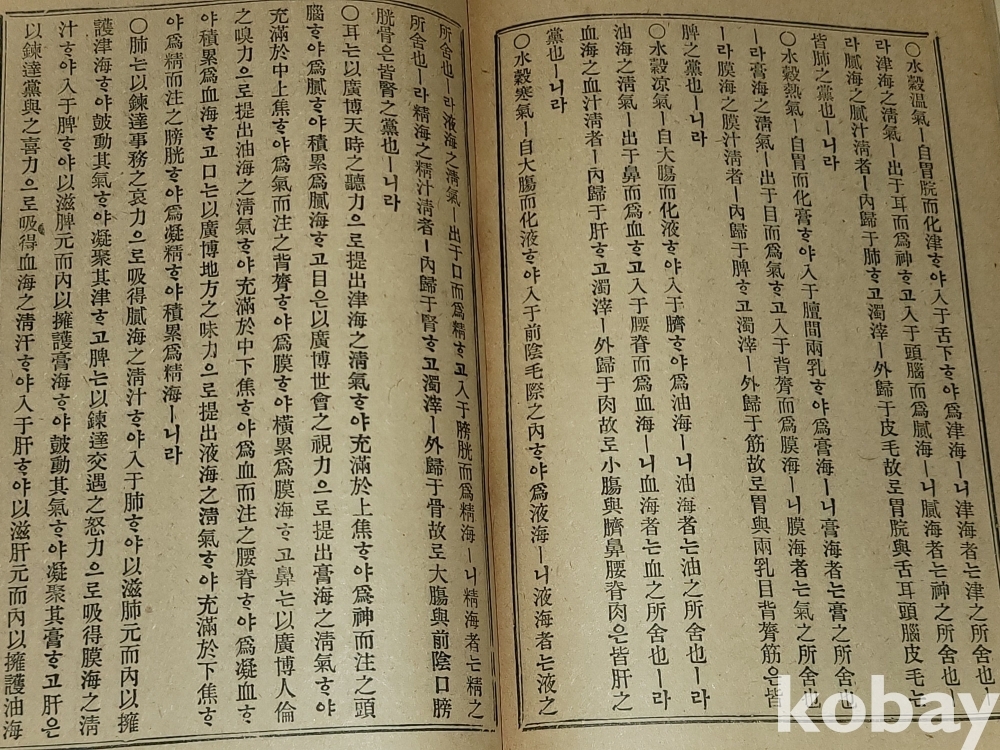 ○水穀温氣ㅣ自胃脘而化津ᄒᆞ야入于舌下ᄒᆞ야爲津海ㅣ니津海者는津之所舍也ㅣ
라津海之淸氣ㅣ出于耳而爲神ᄒᆞ고入于頭腦而爲膩海ㅣ니膩海者는神之所舍也ㅣ
라膩海之膩汁淸者ㅣ內歸于肺ᄒᆞ고濁滓ㅣ外歸于皮毛故로胃脘與舌耳頭腦皮毛는
皆肺之黨也ㅣ니라
○水穀熱氣ㅣ自胃而化膏ᄒᆞ야入于膻間兩乳ᄒᆞ야爲膏海ㅣ니膏海者는膏之所舍也
ㅣ라膏海之淸氣ㅣ出于目而爲氣ᄒᆞ고入于背膂而爲膜海ㅣ니膜海者는氣之所舍也
ㅣ라膜海之膜汁淸者ㅣ內歸于脾ᄒᆞ고濁滓ㅣ外歸于筋故로胃與兩乳目背膂筋은皆
脾之黨也ㅣ니라
○水穀凉氣ㅣ自大腸而化液ᄒᆞ야入于臍ᄒᆞ야爲油海ㅣ니油海者는油之所舍也ㅣ라
油海之淸氣ㅣ出于鼻而爲血ᄒᆞ고入于腰脊而爲血海ㅣ니血海者는血之所舍也ㅣ라
血海之血汁淸者ㅣ內歸于肝ᄒᆞ고濁滓ㅣ外歸于肉故로小腸與臍鼻腰脊肉은皆肝之
黨也ㅣ니라
○水穀寒氣ㅣ自大腸而化液ᄒᆞ야入于前陰毛際之內ᄒᆞ야爲液海ㅣ니液海者는液之
所舍也ㅣ라液海之淸氣ㅣ出于口而爲精ᄒᆞ고入于膀胱而爲精海ㅣ니精海者는精之
所舍也ㅣ라精海之精汁淸者ㅣ內歸于腎ᄒᆞ고濁滓ㅣ外歸于骨故로大腸與前陰口膀
胱骨은皆腎之黨也ㅣ니라
○耳는以廣博天時之聽力으로提出津海之淸氣ᄒᆞ야充滿於上焦ᄒᆞ야爲神而注之頭
腦ᄒᆞ야爲膩ᄒᆞ야積累爲膩海ᄒᆞ고目은以廣博世會之視力으로提出膏海之淸氣ᄒᆞ야
充滿於中上焦ᄒᆞ야爲氣而注之背膂ᄒᆞ야爲膜ᄒᆞ야橫累爲膜海ᄒᆞ고鼻는以廣博人倫
之嗅力으로提出油海之淸氣ᄒᆞ야充滿於中下焦ᄒᆞ야爲血而注之腰脊ᄒᆞ야爲凝血ᄒᆞ
야積累爲血海ᄒᆞ고口는以廣博地方之味力으로提出液海之淸氣ᄒᆞ야充滿於下焦ᄒᆞ
야爲精而注之膀胱ᄒᆞ야爲凝精ᄒᆞ야積累爲精海ㅣ니라
○肺는以鍊達事務之哀力으로吸得膩海之淸汁ᄒᆞ야入于肺ᄒᆞ야以滋肺元而內以擁
護津海ᄒᆞ야鼓動其氣ᄒᆞ야凝聚其津ᄒᆞ고脾는以鍊達交遇之怒力으로吸得膜海之淸
汁ᄒᆞ야入于脾ᄒᆞ야以滋脾元而內以擁護膏海ᄒᆞ야鼓動其氣ᄒᆞ야凝聚其膏ᄒᆞ고肝은
以鍊達黨與之喜力으로吸得血海之淸汗ᄒᆞ야入于肝ᄒᆞ야以滋肝元而內以擁護油海
kobay